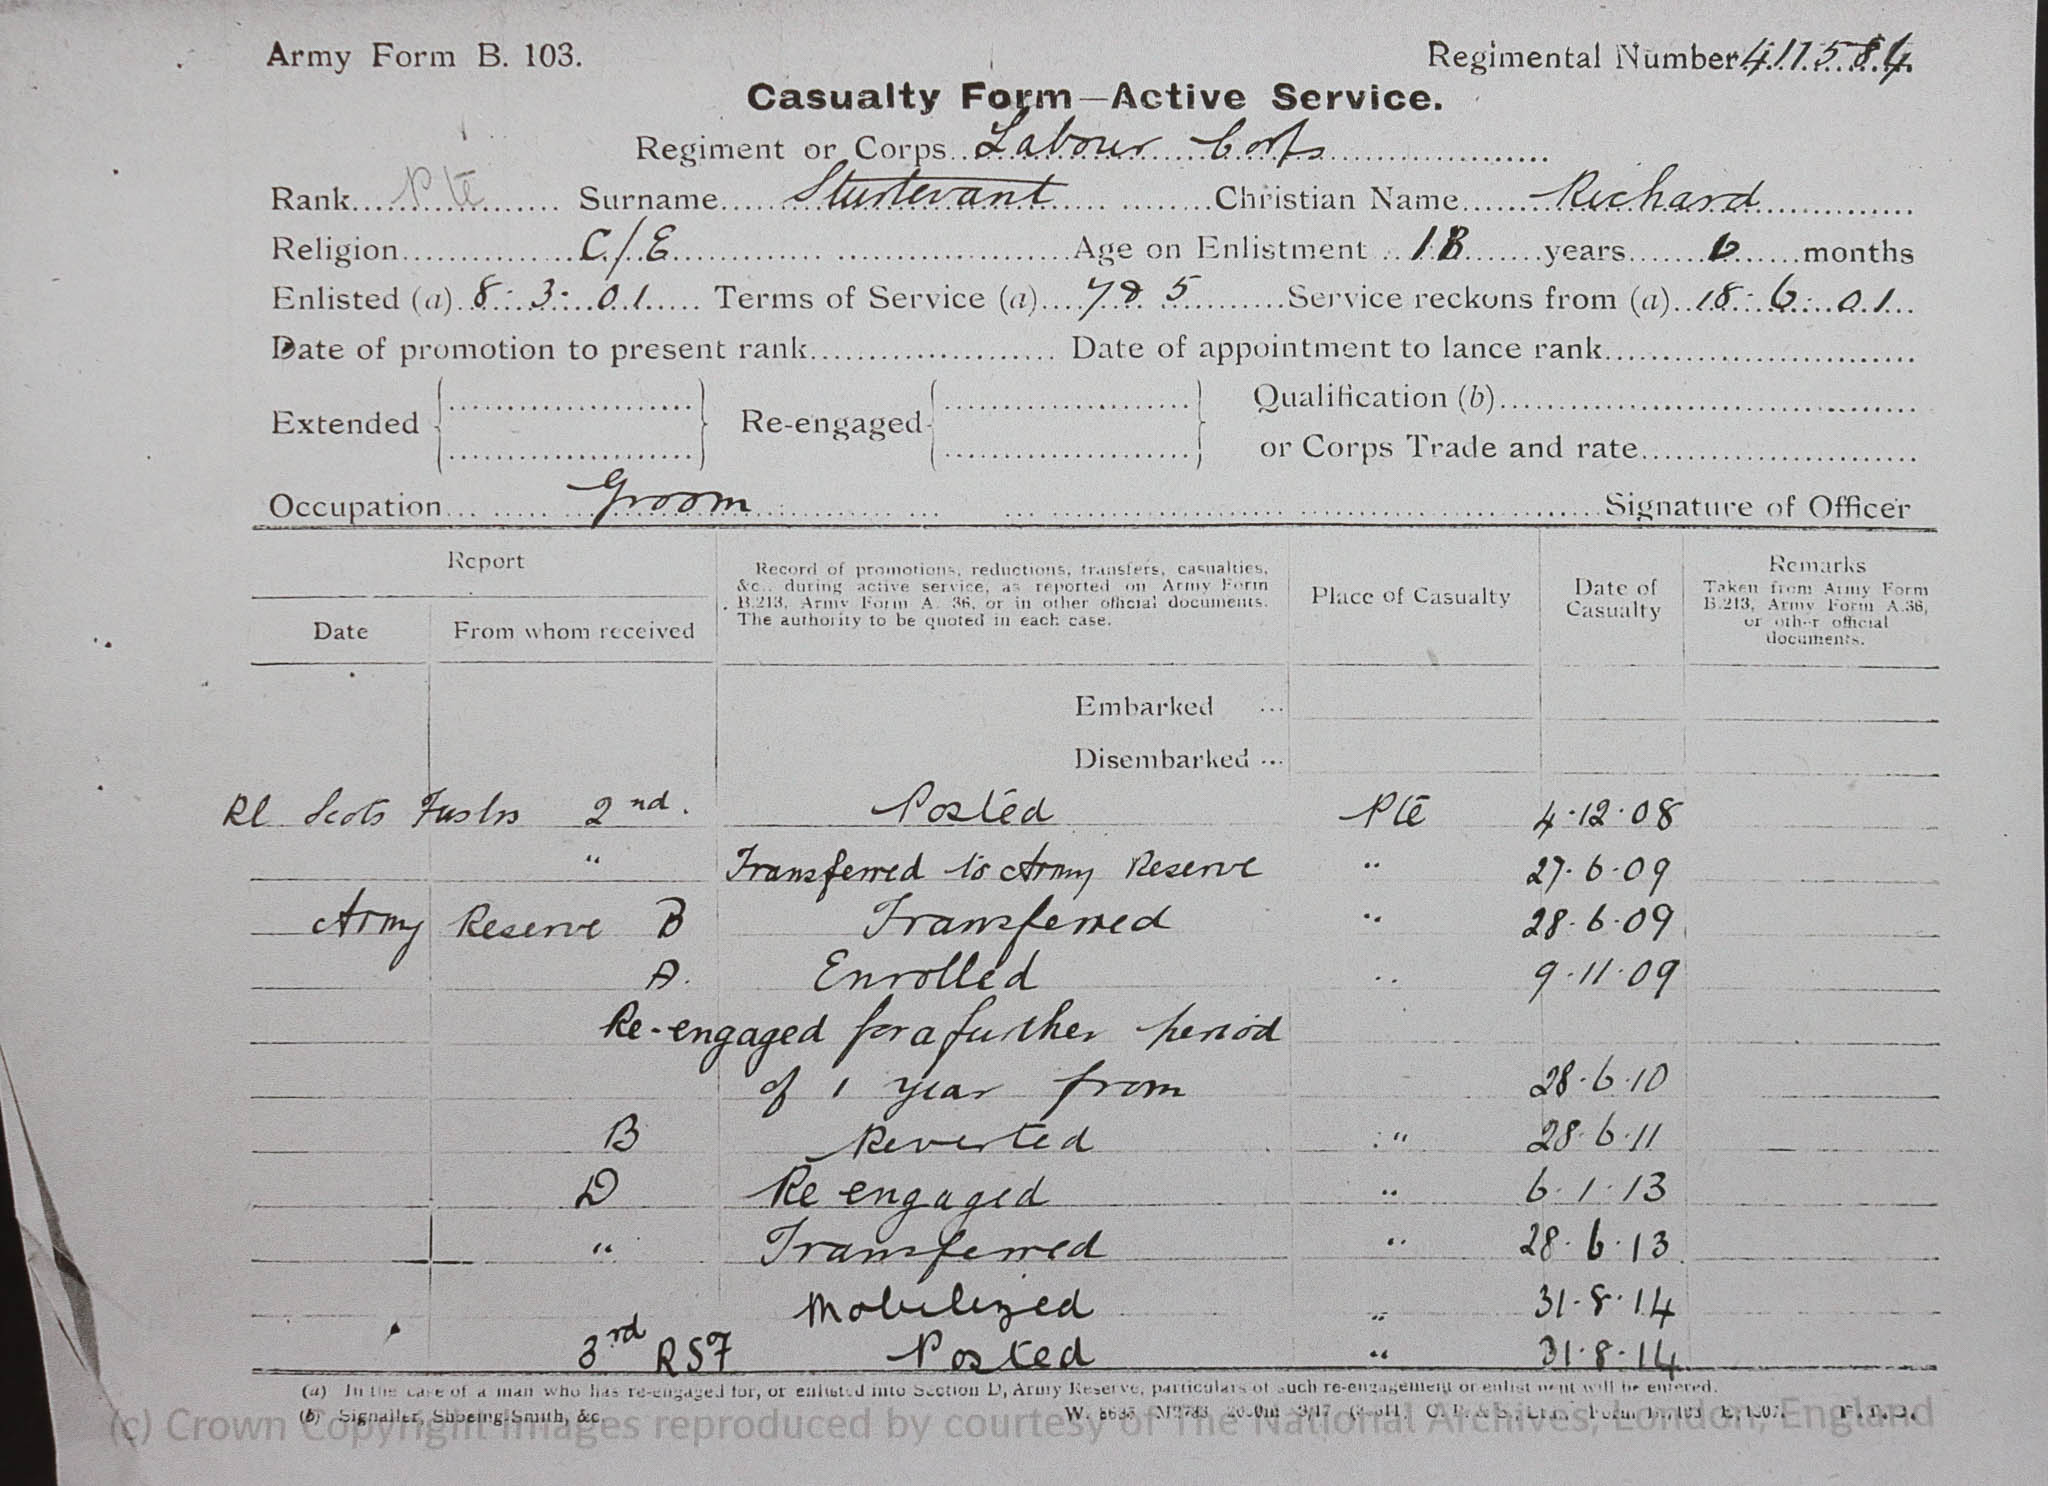 Army Form B. 103.
Regimental Number 411584
Casualty Form—Active Service.
Regiment or Corps Labour Corps
Rank Pte Surname Sturtevant Christian Name Richard
Religion C/E Age on Enlistment 18 years 6 months
Enlisted (a) 8-3-01 Terms of Service (a) 7 & 5 Service reckons from (a) 18-6-01
Date of promotion to present rank Date of appointment to lance rank
Extended Re-engaged Qualification (b)
or Corps Trade and rate
Occupation Groom Signature of Officer
Report
Date From whom received
Record of promotions, reductions, transfers, casualties,
&c., during active service, as reported on Army Form
B.213, Army Form A. 36, or in other official documents.
The authority to be quoted in each case.
Place of Casualty
Date of
Casualty
Remarks
Taken from Army Form
B.213, Army Form A.36,
or other official
documents.
Embarked ...
Disembarked ...
Rl Scots Fuslrs 2nd. Posted Pte 4·12·08
" Transferred to Army Reserve " 27·6·09
Army Reserve B Transferred " 28·6·09
A. Enrolled " 9·11·09
Re-engaged for a further period
of 1 year from 28·6·10
B Reverted " 28·6·11
D Re engaged " 6·1·13
" Transferred " 28·6·13
Mobilized " 31·8·14
3rd RSF Posted " 31·8·14
(a) In the case of a man who has re-engaged for, or enlisted into Section D, Army Reserve, particulars of such re-engagement or enlistment will be entered.
(b) Signaller, Shoeing-Smith, &c.
P.T.O.
(c) Crown Copyright Images reproduced by courtesy of The National Archives, London, England